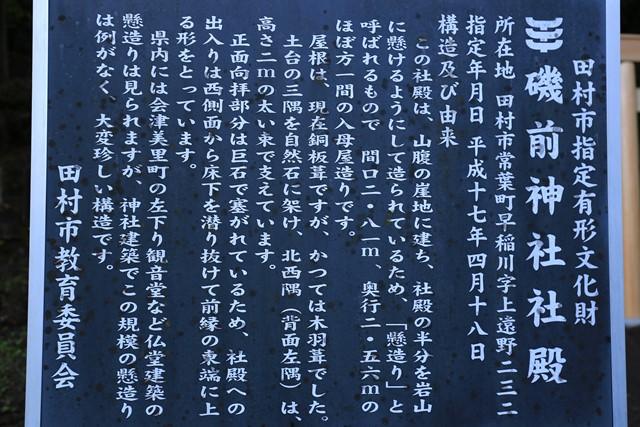 田村市指定有形文化財
磯前神社社殿
所在地 田村市常葉町早稲川字上遠野二三二
指定年月日 平成十七年四月十八日
構造及び由来
この社殿は、山腹の崖地に建ち、社殿の半分を岩山
に懸けるようにして造られているため、「懸造り」と
呼ばれるもので 間口二・八一m、奥行二・五六mの
ほぼ方一間の入母屋造りです。
屋根は、現在銅板葺ですが、かつては木羽葺でした。
土台の三隅を自然石に架け、北西隅(背面左隅)は、
高さ二mの太い束で支えています。
正面向拝部分は巨石で塞がれているため、社殿への
出入りは西側面から床下を潜り抜けて前縁の東端に上
る形をとっています。
県内には会津美里町の左下り観音堂など仏堂建築の
懸造りは見られますが、神社建築でこの規模の懸造り
は例がなく、大変珍しい構造です。
田村市教育委員会